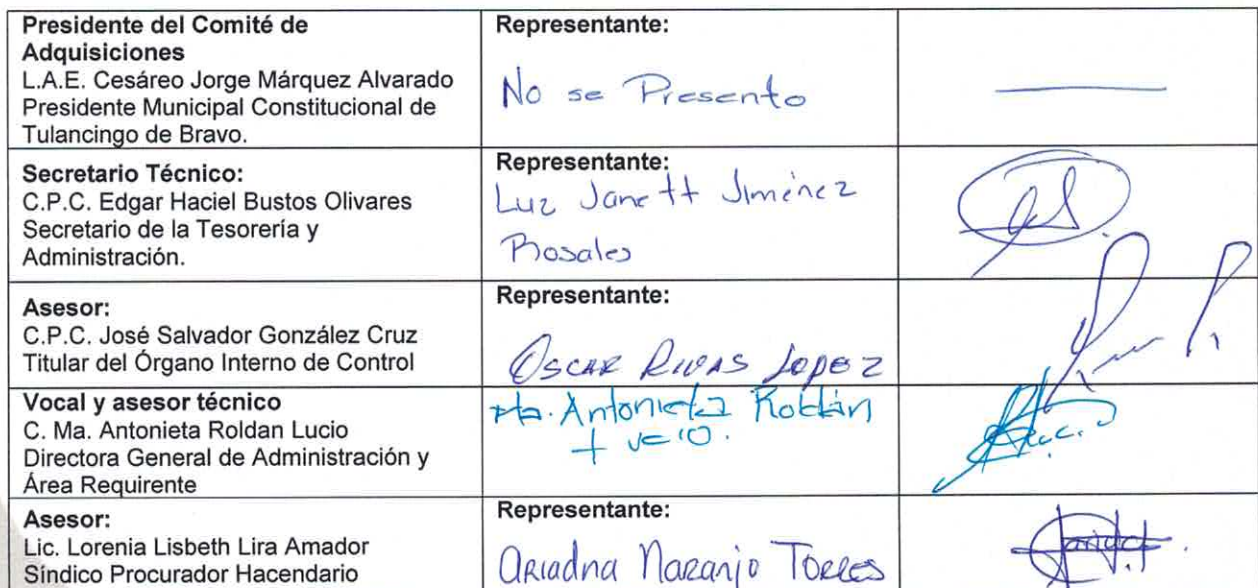 Presidente del Comité de
Adquisiciones
L.A.E. Cesáreo Jorge Márquez Alvarado
Presidente Municipal Constitucional de
Tulancingo de Bravo.
Representante:
No se Presento
Secretario Técnico:
C.P.C. Edgar Haciel Bustos Olivares
Secretario de la Tesorería y
Administración.
Representante:
Luz Janett Jiménez
Rosales
Asesor:
C.P.C. José Salvador González Cruz
Titular del Órgano Interno de Control
Representante:
Oscar Rivas Lopez
Vocal y asesor técnico
C. Ma. Antonieta Roldan Lucio
Directora General de Administración y
Área Requirente
Ma. Antonieta Roldán
Asesor:
Lic. Lorenia Lisbeth Lira Amador
Síndico Procurador Hacendario
Representante:
Ariadna Naranjo Torres